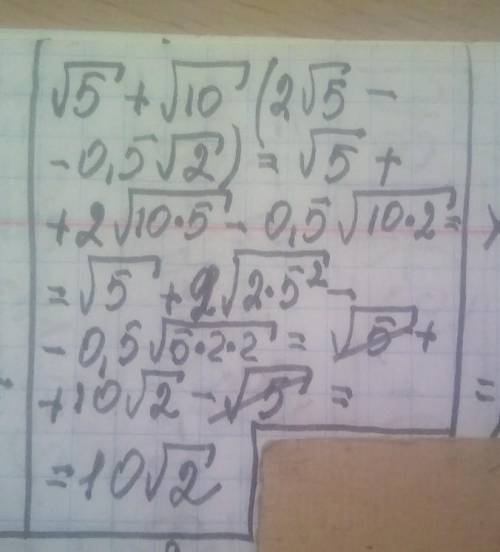 √5 + √10 (2√5 −
− 0,5√2) = √5 +
+ 2√10·5 − 0,5√10·2 =
= √5 + 2√2·5² −
− 0,5√5·2·2 = √5 +
+ 10√2 − √5 =
= 10√2